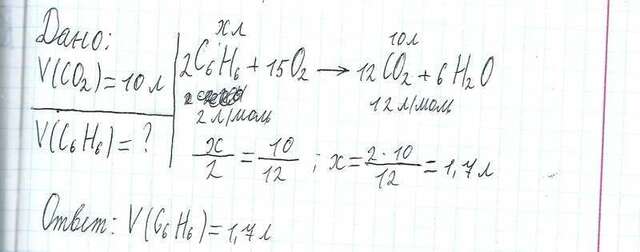 Дано:
V(CO₂)=10 л
V(C₆H₆)=?
х л 10 л
2C₆H₆ + 15O₂ → 12CO₂ + 6H₂O
2 л/моль 12 л/моль
х/2 = 10/12 ; х = 2·10/12 = 1,7 л
Ответ: V(C₆H₆)=1,7 л